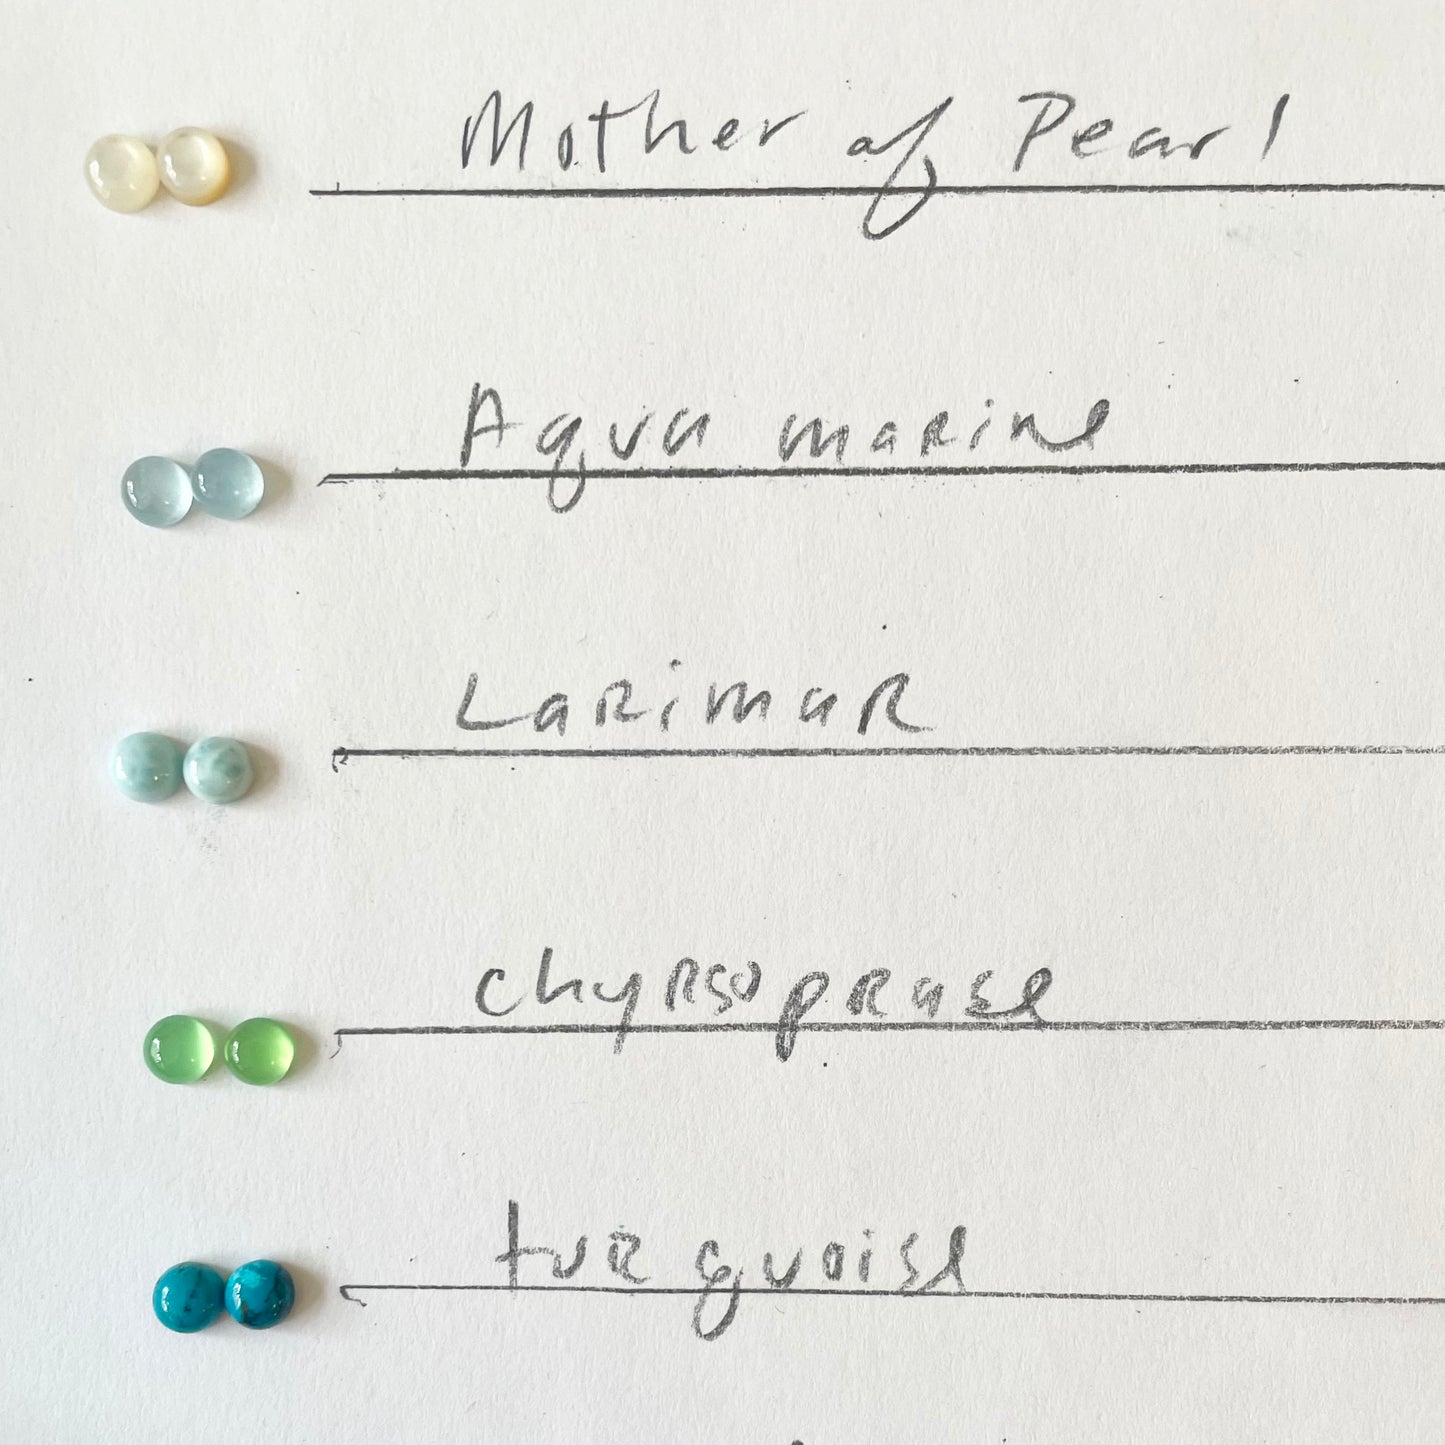 Mother of Pearl
Aqua marine
Larimar
chyrsoprase
turquoise